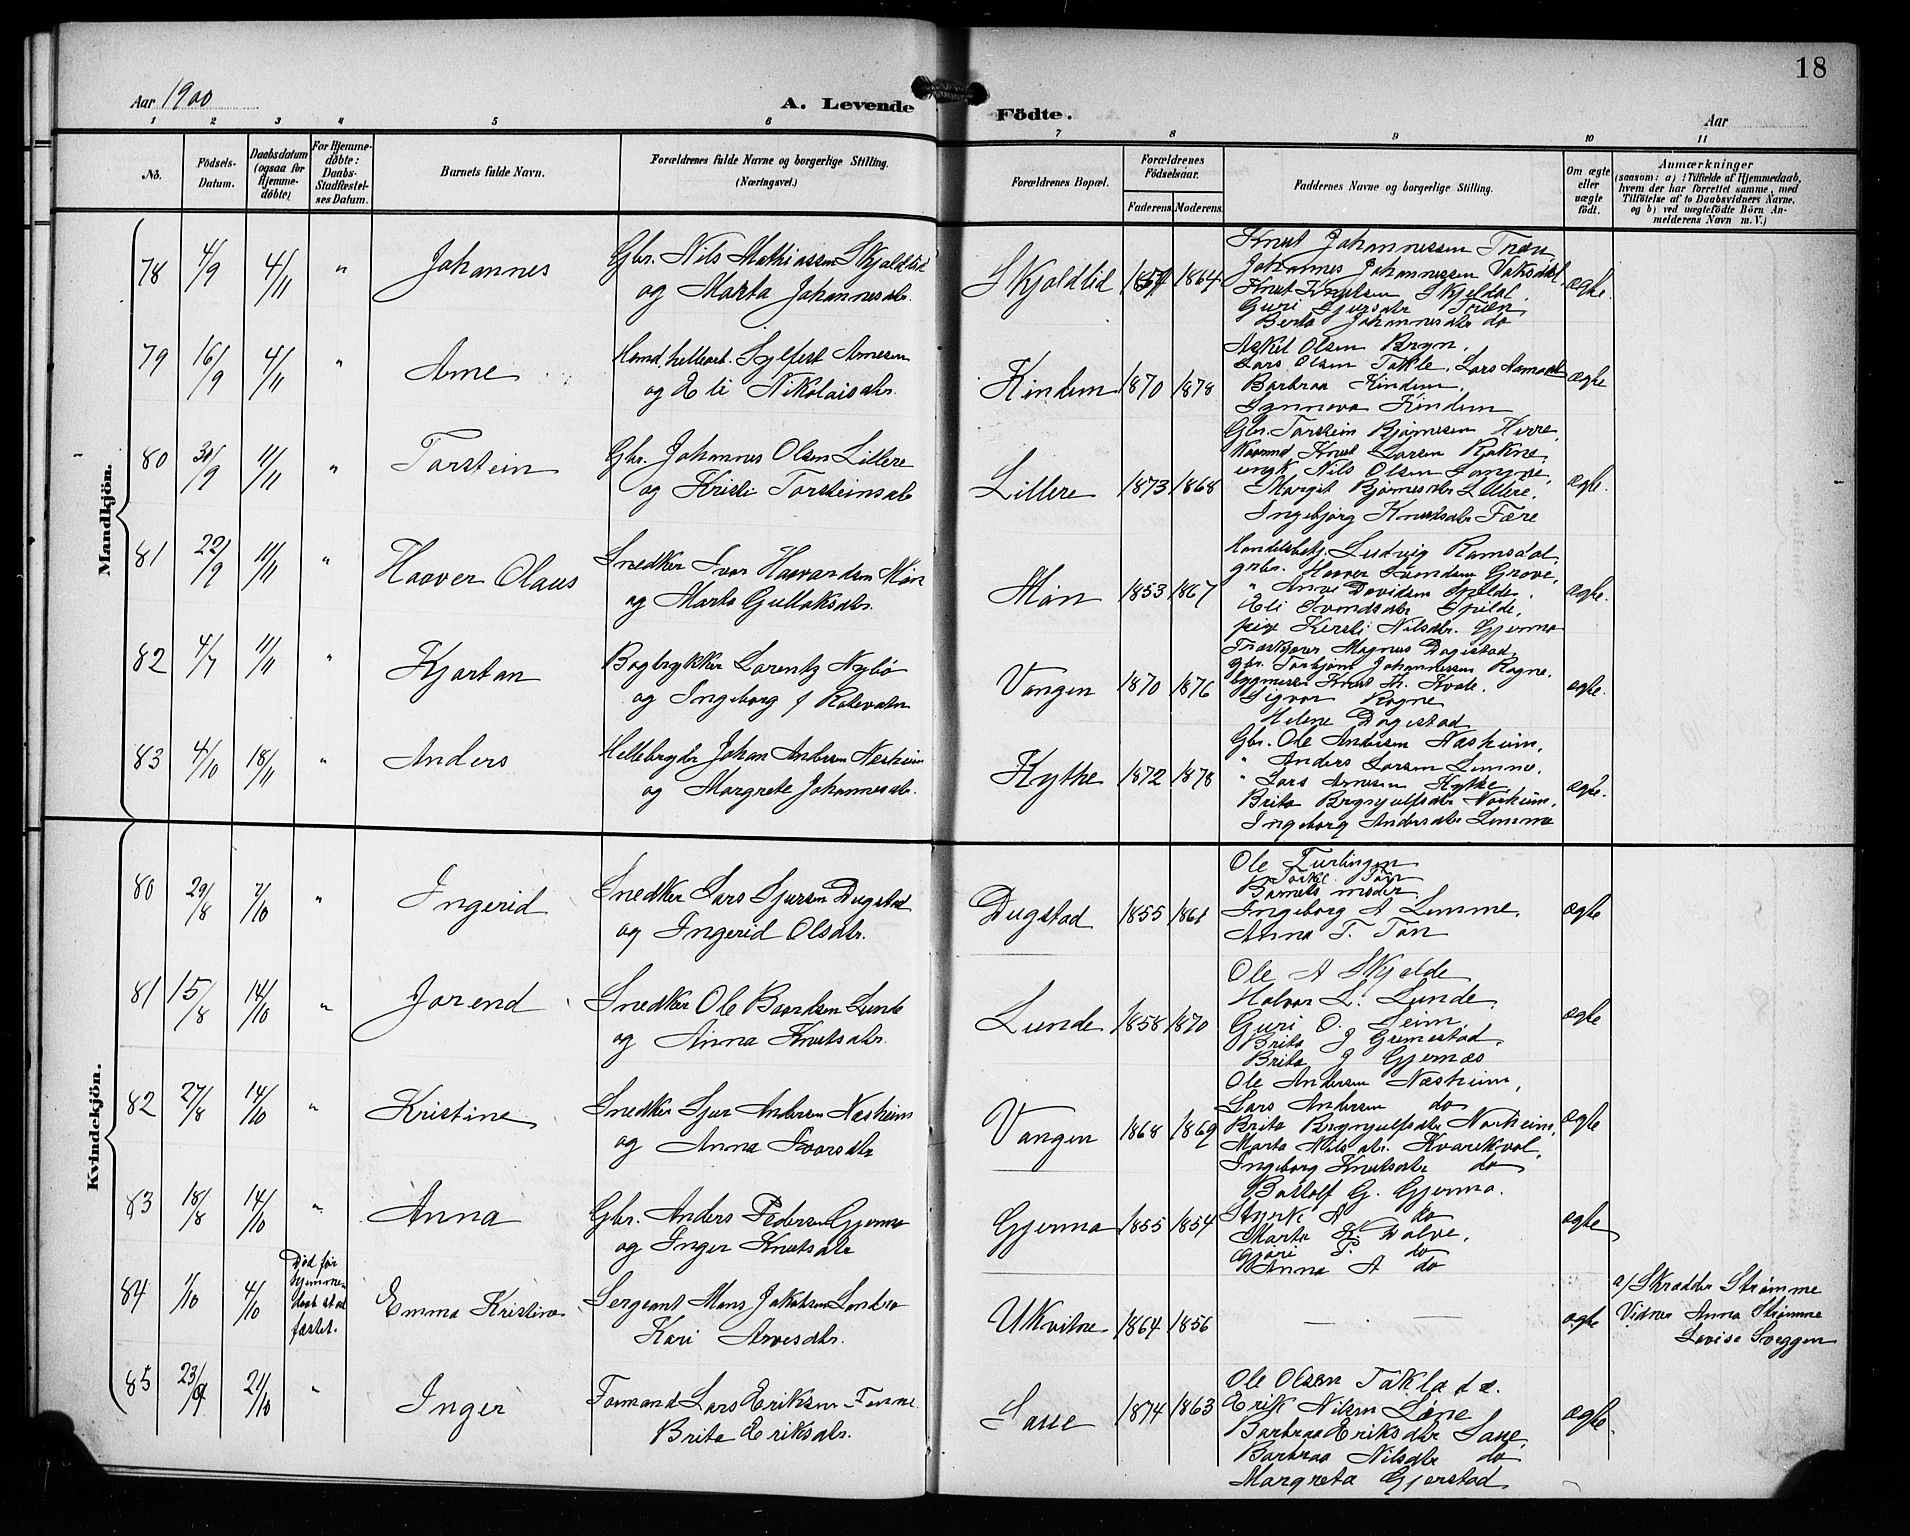 18
Aar 1900
A. Levende
Födte.
Aar
1 2 3 4 5 6 7 8 9 10 11
No.
Födsels-Datum.
Daabsdatum (ogsaa for Hjemmedøbte)
For Hjemmedøbte: Daabs-Stadfæstelses Datum.
Barnets fulde Navn.
Forældrenes fulde Navne og borgerlige Stilling. (Næringsvei.)
Forældrenes Bopæl.
Forældrenes Födselsaar.
Faderens. Moderens.
Faddernes Navne og borgerlige Stilling.
Om ægte eller uægte födt.
Anmærkninger
(saasom: a) i Tilfælde af Hjemmedaab,
hvem der har forrettet samme, med
Tilföielse af to Daabsvidners Navne,
og b) ved uægtefödte Börn An-
melderens Navn m. V.)
Mandkjön.
78 4/9 4/11 " Johannes
Gbr. Nils Mathiassen Skjeldlid
og Marta Johannesdtr.
Skjoldlid 1854 1864
Knut Johannessen Træn
Johannes Johannessen Vaksdal
Knut Knutsen Skjeldal
Guri Sjursdtr
Berta Johannesdtr do
ægte.
79 16/9 4/11 " Arne
Hand. hellearb. Sylfest Arnesen
og Eli Nikolaisdtr.
Kindem 1870 1878
Askel Olsen Bryn.
Lars Olsen Takle. Lars
Barbraa Kindem,
Synneva Kindem
ægte
80 30/9 11/11 " Torstein
Gbr. Johannes Olsen Lillere
og Kristi Torsteinsdtr
Lillere 1873 1868
Gbr. Torstein Bjørnesen Herre,
Knut Larsen Rokne,
ungk. Nils Olsen
Margit Bjørnesdtr Lillere,
Ingebjørg Knutsdtr Fære
ægte.
81 22/9 11/11 " Haaver Olaus
Snedker Ivar Haavardsen Møn
og Marta Gullaksdtr.
Møn 1853 1867
Handelsbetj. Ludvig Ramsdal,
grbr. Haaver Svendsen Grove,
" Arne Davidsen Spilde,
Eli Svendsdtr Spilde,
pige Kersti Nilsdtr. Gjerma
ægte.
82 4/7 11/11 " Kjartan
Bogtrykker Lorentz Nybø
og Ingeborg f Rotevatn
Vangen 1870 1876
Magnus Dagestad
gbr. Torbjørn Johannessen Rogne.
bygmester Knut Th. Kvale.
Sigvor Rogne
Helene Dagestad
ægte.
83 4/10 18/11 " Anders
Hellebryder Johan Andersen Næsheim
og Margrete Johannesdtr.
Kythe 1872 1878
Gbr. Ole Andersen Næsheim,
" Anders Larsen Lemme,
" Lars Arnesen Kythe
Brita Brynjulfsdtr Norheim,
Ingeborg Andersdtr Lemme
ægte.
Kvindekjön.
80 29/8 7/10 " Ingerid
Snedker Lars Sjursen Dugstad
og Ingerid Olsdtr.
Dugstad 1855 1861
Ole Furlingen
Torkel Tøn
Barnets moder
Ingeborg A Lemme.
Anna T. Tøn
ægte
81 15/8 14/10 " Jorend
Snedker Ole Baardsen Lunde
og Anna Knutsdtr.
Lunde 1858 1870
Ole A Skjelde
Halvor L. Lunde
Guri O. Seim
Brita J Grimestad,
Brita J Gjernæs
ægte
82 27/8 14/10 " Kristine
Snedker Sjur Andersen Næsheim
og Anna Ivarsdtr
Vangen 1868 1869
Ole Andersen Næsheim,
Lars Andersen do
Brita Brynjulfsdtr Norheim,
Marta Nilsdtr. Kvarekval,
Ingeborg Knutsdtr do
ægte
83 18/8 14/10 " Anna
Gbr. Anders Pedersen Gjerma
og Inger Knutsdtr
Gjerma 1855 1854
Botolf G. Gjerma.
Styrk A do
Marta K. Dolve,
Gjøri P. do
Anna A do
ægte
84 1/10 4/10 Død før hjemmedaab stadfæstet. Emma Kristine
Sergeant Mons Jakobsen Londro
Kari Arvesdtr.
Ukvitne 1864 1856 — . —
ægte
a/ Skrædder Strømme
Vidner Anna Strømme
Lovise Sveggen
85 23/9 21/10 " Inger
Formand Lars Eriksen Fenne
Brita Eriksdtr.
Saue 1874 1863
Ole Olsen Takla d.e.
Erik Nilsen Løne
Barbraa Eriksdtr Saue,
Barbraa Nilsdtr do
Margreta Gjerstad
ægte.